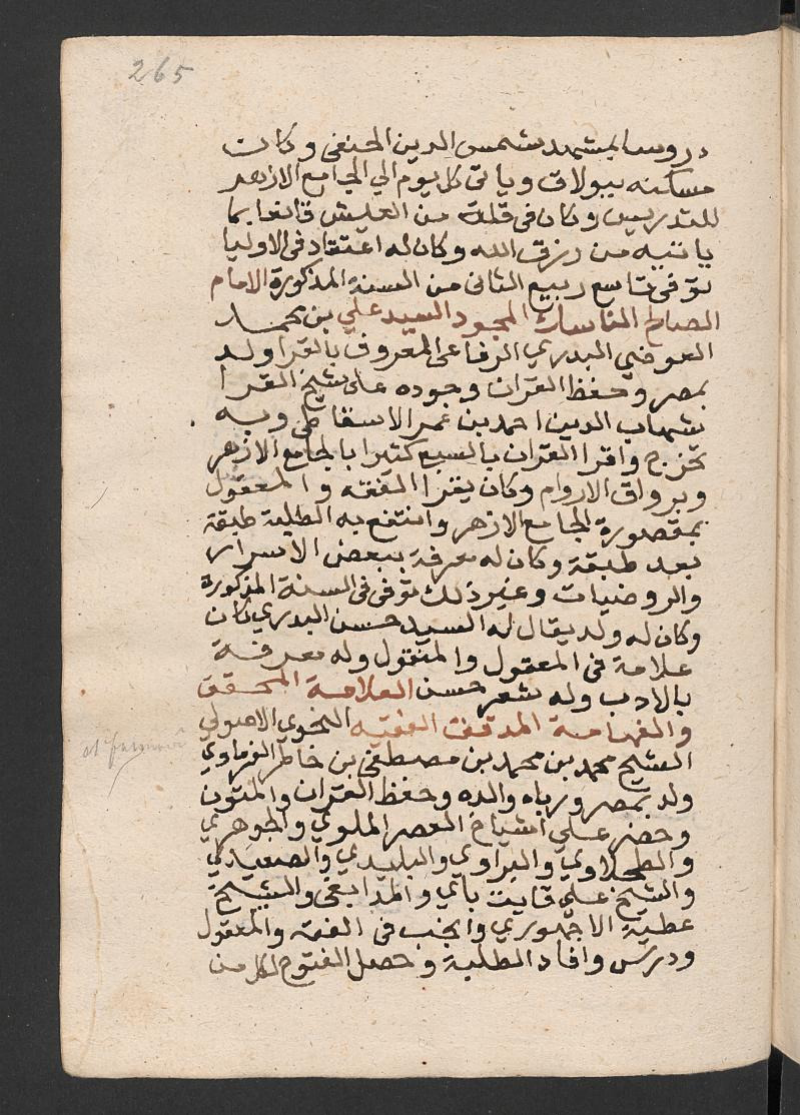 265
دروسا بمشهد شمس الدين الحنفي وكان
مسكنه ببولاق وياتي كل يوم الي الجامع الازهر
للتدريس وكان في قلة من العيش قانعا بما
ياتيه من رزق الله وكان له اعتقاد في الاوليا
توفي تاسع ربيع الثاني من السنة المذكورة الامام
الصالح الناسك المجود السيد علي بن محمد
العوضي البدري الرفاعي المعروف بالقرا ولد
بمصر وحفظ القران وجوده علي شيخ القرا
شهاب الدين احمد بن عمر الاسقاطي وبه
تخرج واقرا القران بالسبع كثيرا بالجامع الازهر
وبرواق الاروام وكان يقرا الفقه والمعقول
بمقصورة الجامع الازهر وانتفع به الطلبة طبقة
بعد طبقة وكان له معرفة ببعض الاسرار
والروضيات وغير ذلك توفي في السنة المذكورة
وكان له ولد يقال له السيد حسن البدري كان
علامة في المعقول والمنقول وله معرفة
بالادب وله شعر حسن العلامة المحقق
والفهامة المدقق الفقيه النحوي الاصولي
الشيخ محمد بن محمد بن مصطفي بن خاطر الفرماوي
ولد بمصر ورباه والده وحفظ القران والمتون
وحضر علي اشياخ العصر الملوي والجوهري
والطحلاوي والبراوي والبليدي والصعيدي
والشيخ علي قايت باي والمدابغي والشيخ
عطية الاجهوري وانجب في الفقه والمعقول
ودرس وافاد الطلبة وحصل الفتوح لكل من